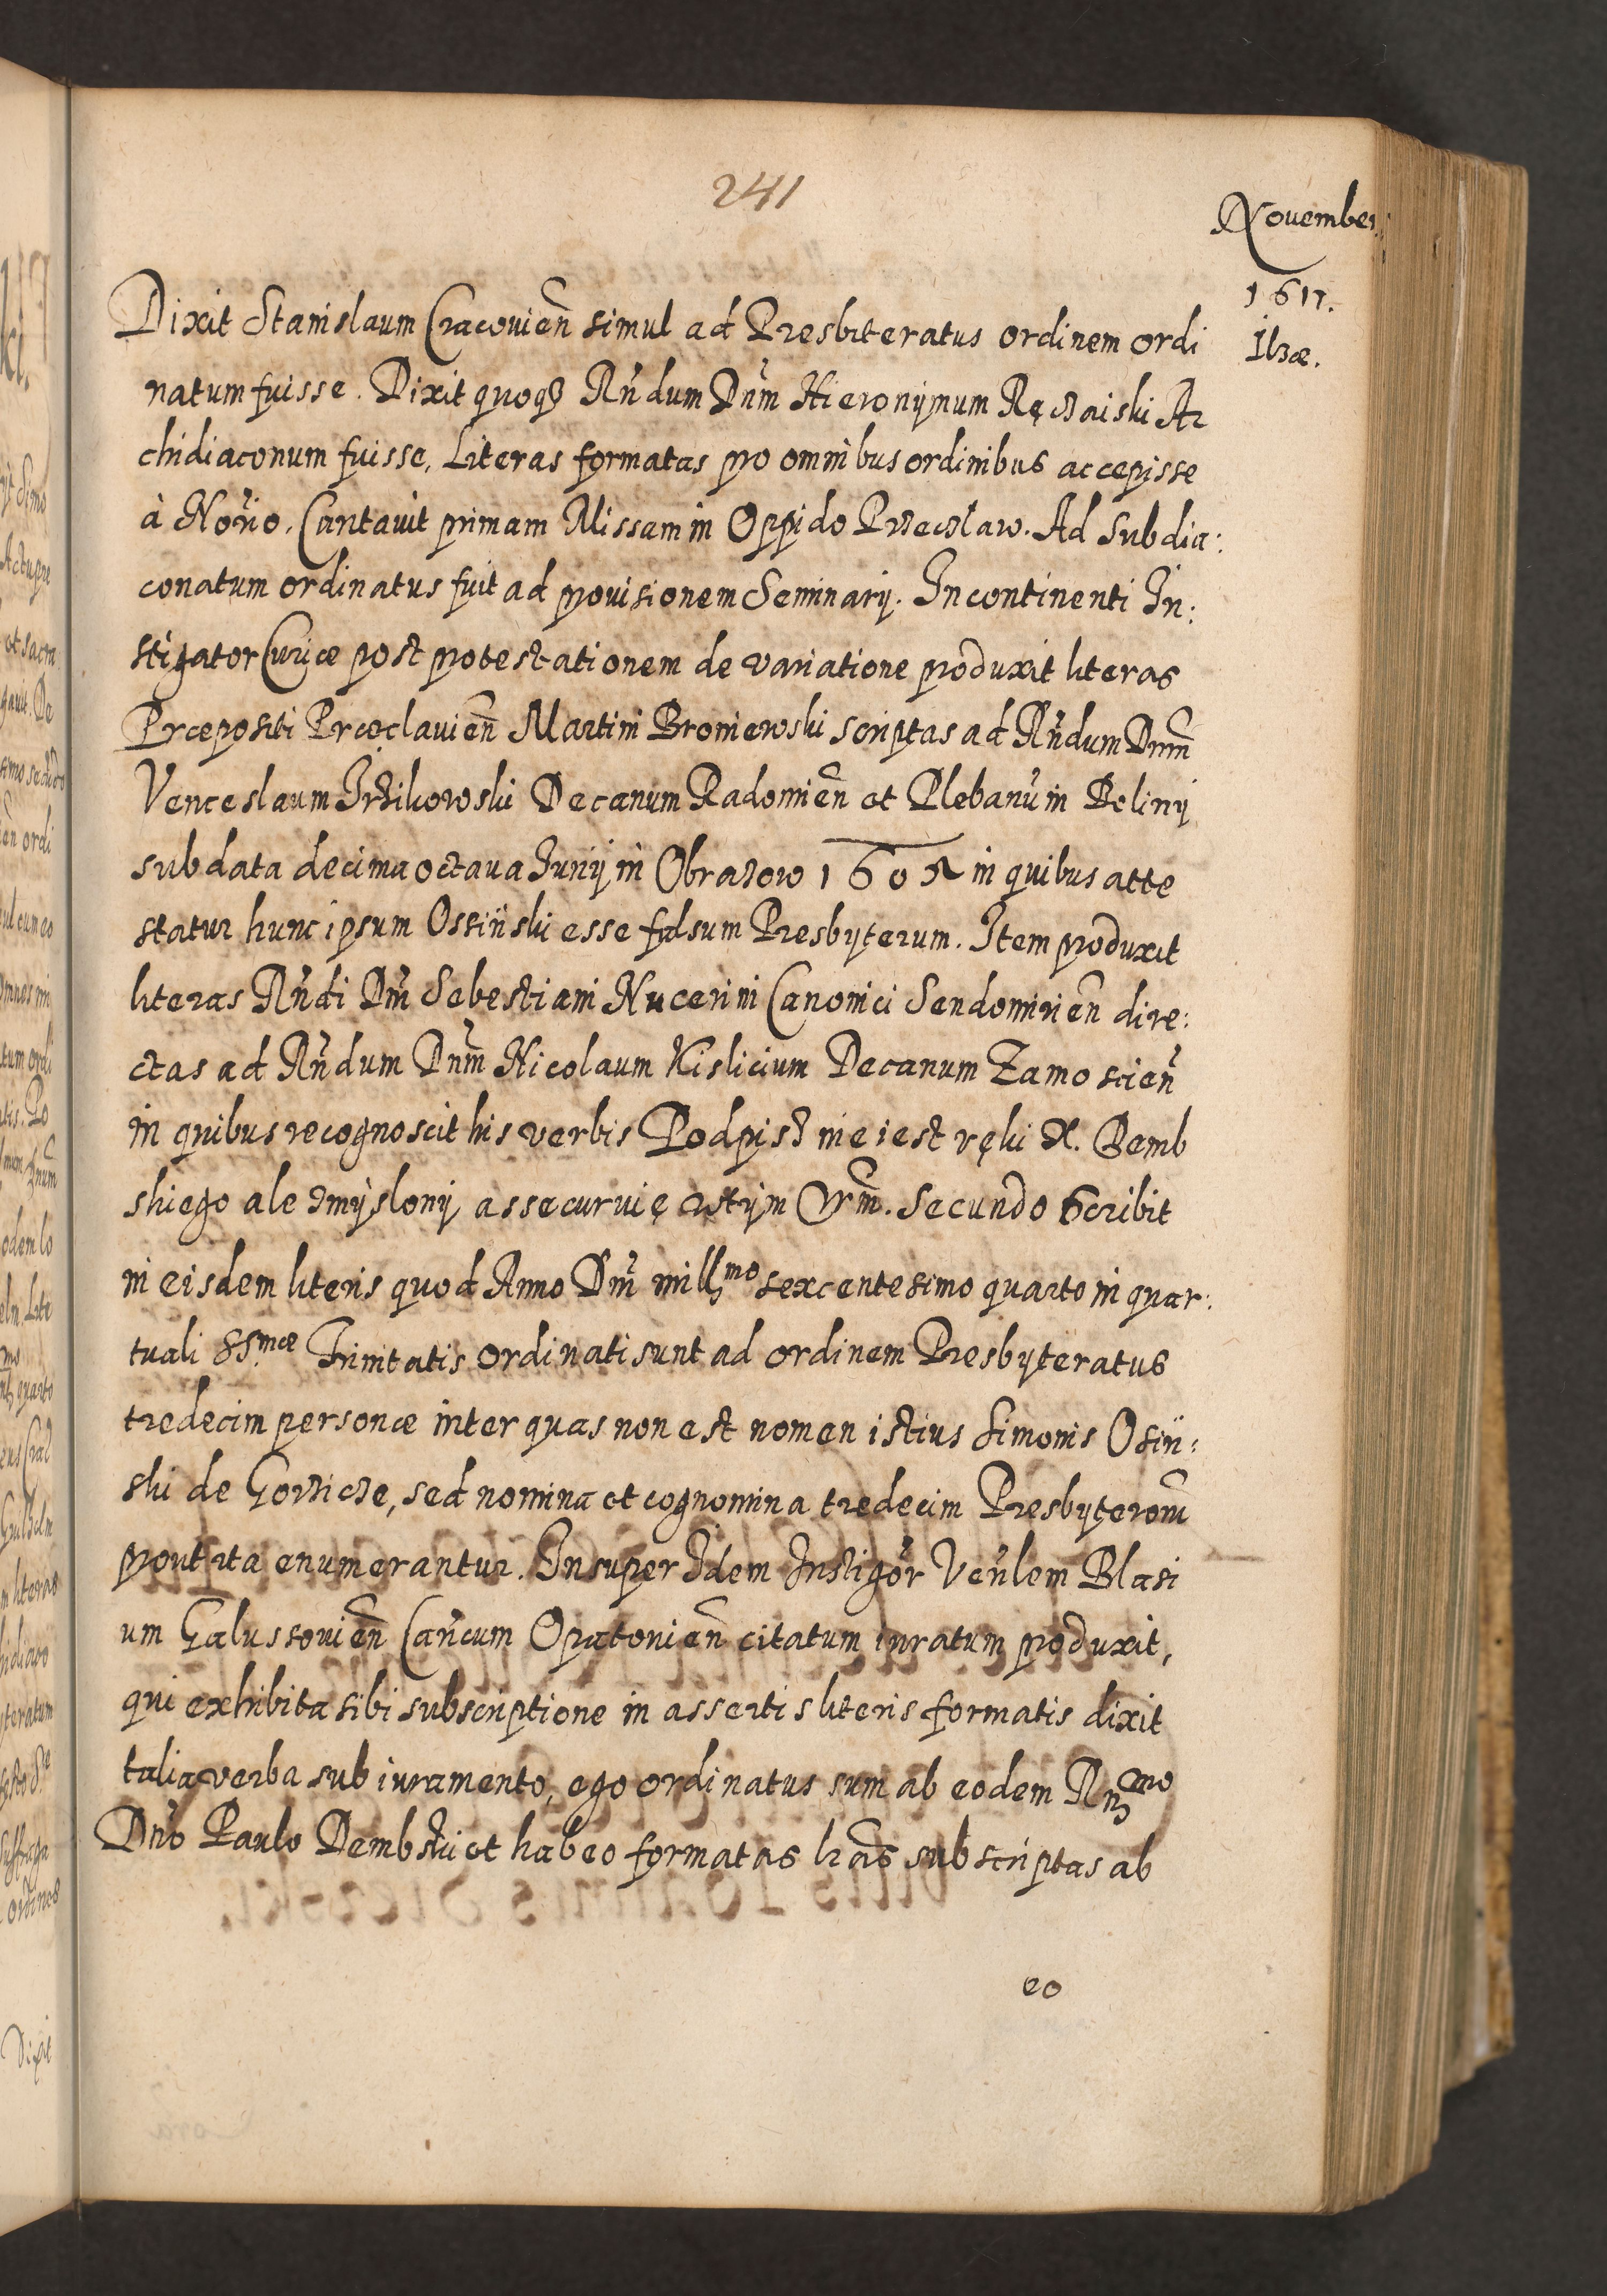 241
Nouember
1617.
Ilzæ.
Dixit Stanislaum Cracouień simul ad Presbiteratus ordinem ordi
natum fuisse. Dixit quoqꝫ Rńdum Dńm Hieronijmum Ręczaiski Ar
chidiaconum fuisse, Literas formatas pro omnibus ordinibus accepisse
à Norio. Cantauit primam Missam in Oppido Przeczław. Ad Subdia:
conatum ordinatus fuit ad prouisionem Seminarij. Incontinenti In:
stigator Curiæ post protestationem de variatione produxit literas
Præpositi Præclauień Martini Broniewski scriptas ad Rńdum Dnm̃
Venceslaum Irzikowski Decanum Radomień et Plebanũ in Beliny
sub data decima octaua Junij in Obrazow 1605 in quibus atte
statur hunc ipsum Ossiński esse falsum Presbyterum. Item produxit
literas Rńdi Dñi Sebestiani Nucerini Canonici Sendomirień dire:
ctas ad Rńdum Dnm̃ Nicolaum Kislicium Decanum Zamoscień
in quibus recognoscit his verbis Podpisz nie iest ręki X. Demb
skiego ale zmÿslonÿ assecuruię wtÿm Wm̃. Secundo Scribit
in eisdem literis quod Anno Dñi mill<sup>mo</sup> sexcentesimo quarto in quar:
tuali SS<sup>mæ</sup> Trinitatis ordinati sunt ad ordinem Presbyteratus
tredecim personæ inter quas non est nomen istius Simonis Osiń:
ski de Gorzicze, sed nomina et cognomina tredecim Presbyterorũ
prout ita enumerantur. Insuper Idem Instigor̃ Veńlem Blasi
um Galussouień Cańcum Opatouień citatum iuratum produxit,
qui exhibita sibi subscriptione in assertis literis formatis dixit
talia verba sub iuramento, ego ordinatus sum ab eodem Rn<sup>mo</sup>
Dńo Paulo Dembski et habeo formatas lr̃as subscriptas ab
eo